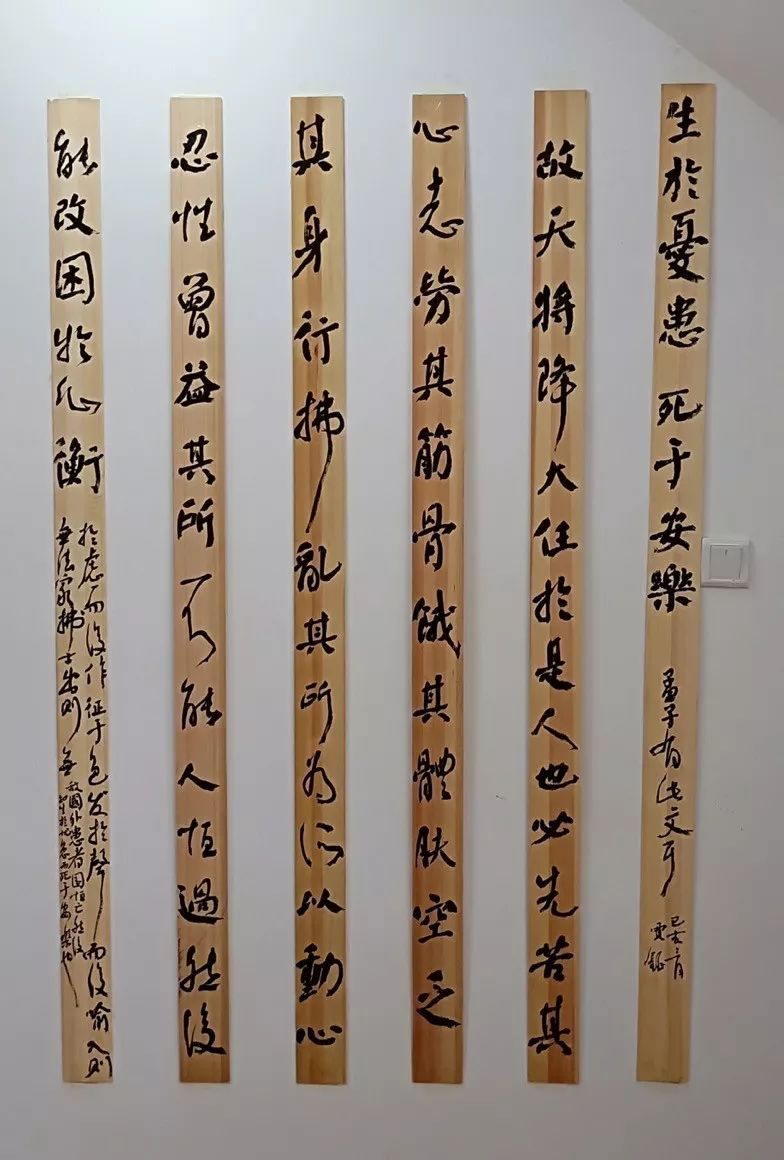 生於憂患 死于安樂
孟子有此文耳
己亥
故天将降大任於是人也必先苦其
心志勞其筋骨餓其體肤空乏
其身行拂亂其所為所以動心
忍性曾益其所不能人恒過然後
能改困於心衡
於慮而後作征于色发於聲而後喻入则
無法家拂士出则無
敌國外患者国恒亡然後
知生於忧患而死于安樂也